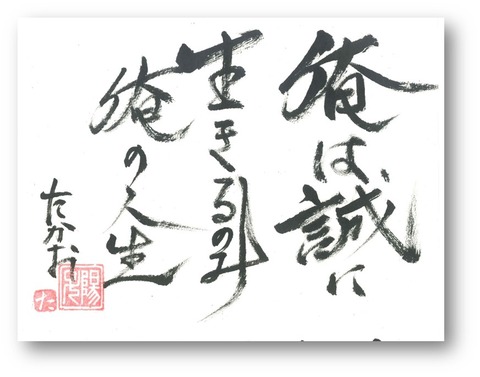 俺は、誠に
生きるのみ
俺の人生
たかお
た